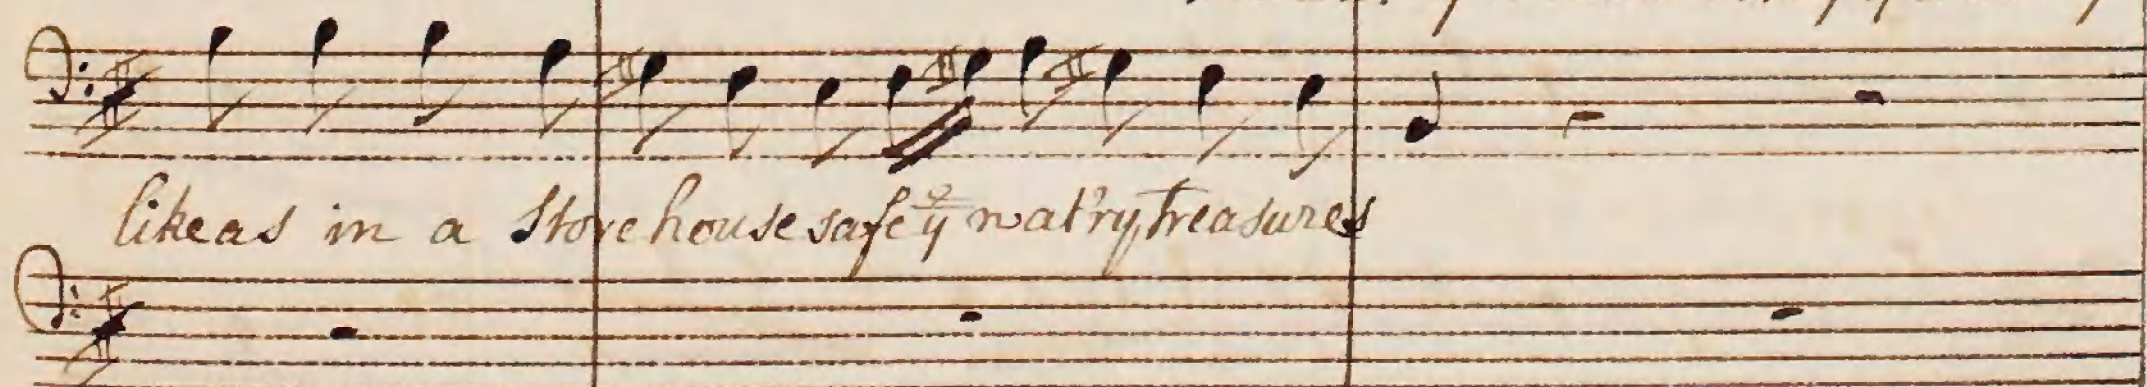 like as in a Storehouse safe yͤ wat'ry Treasures